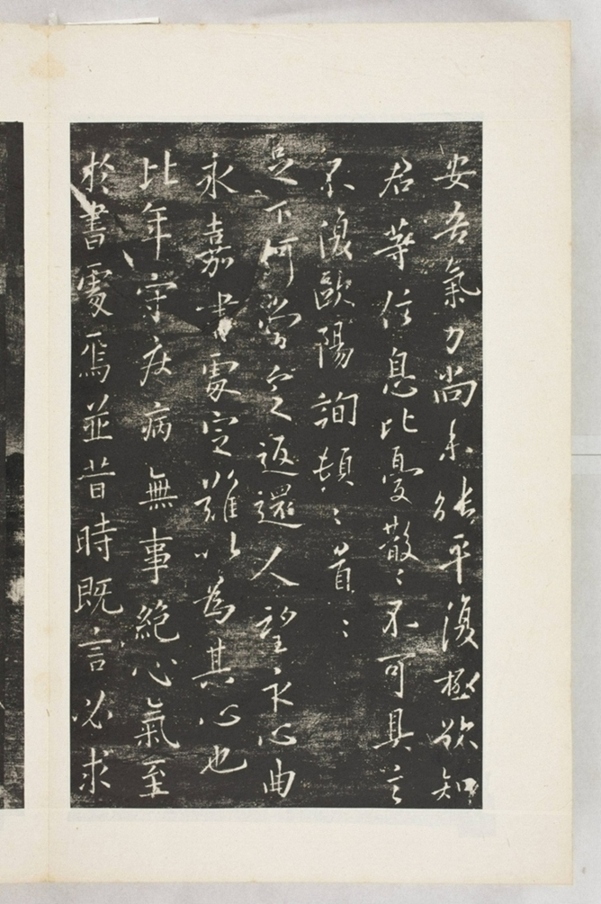 安吾氣力尚未能平復極欲知
君等信息比憂散〻不可具言
不復歐陽詢頓〻首〻
足下何當定返還人望示心曲
永嘉書處定難以為其心也
比年守疾病無事絕心氣至
於書處焉並昔時既言必求